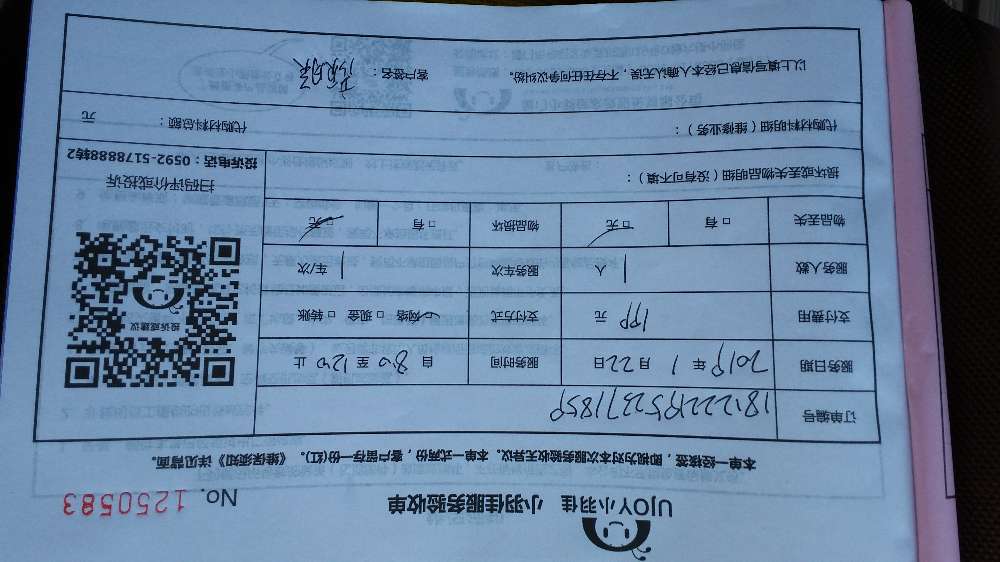 UJOY小羽佳 小羽佳服务验收单 No. 1250583
本单一经接签，即视为对本次服务验收无异议。本单一式两份，客户留存一份(红)。《维保须知》详见背面。
订单编号
服务日期 2019年1月22日 服务时间 自800至1200止
支付费用 199元 支付方式 网络 □现金 □转账
服务人数 1人 服务车次 1车/次
物品丢失 □有 □无 物品损坏 □有 □无
损坏或丢失物品明细（没有可不填）：
投诉或建议
扫码评价或投诉
投诉电话：0592-5178888转2
代购材料明细（维修业务）： 代购材料总额： 元
以上填写信息已经本人确认无误，不存在任何争议纠纷。 客户签名：